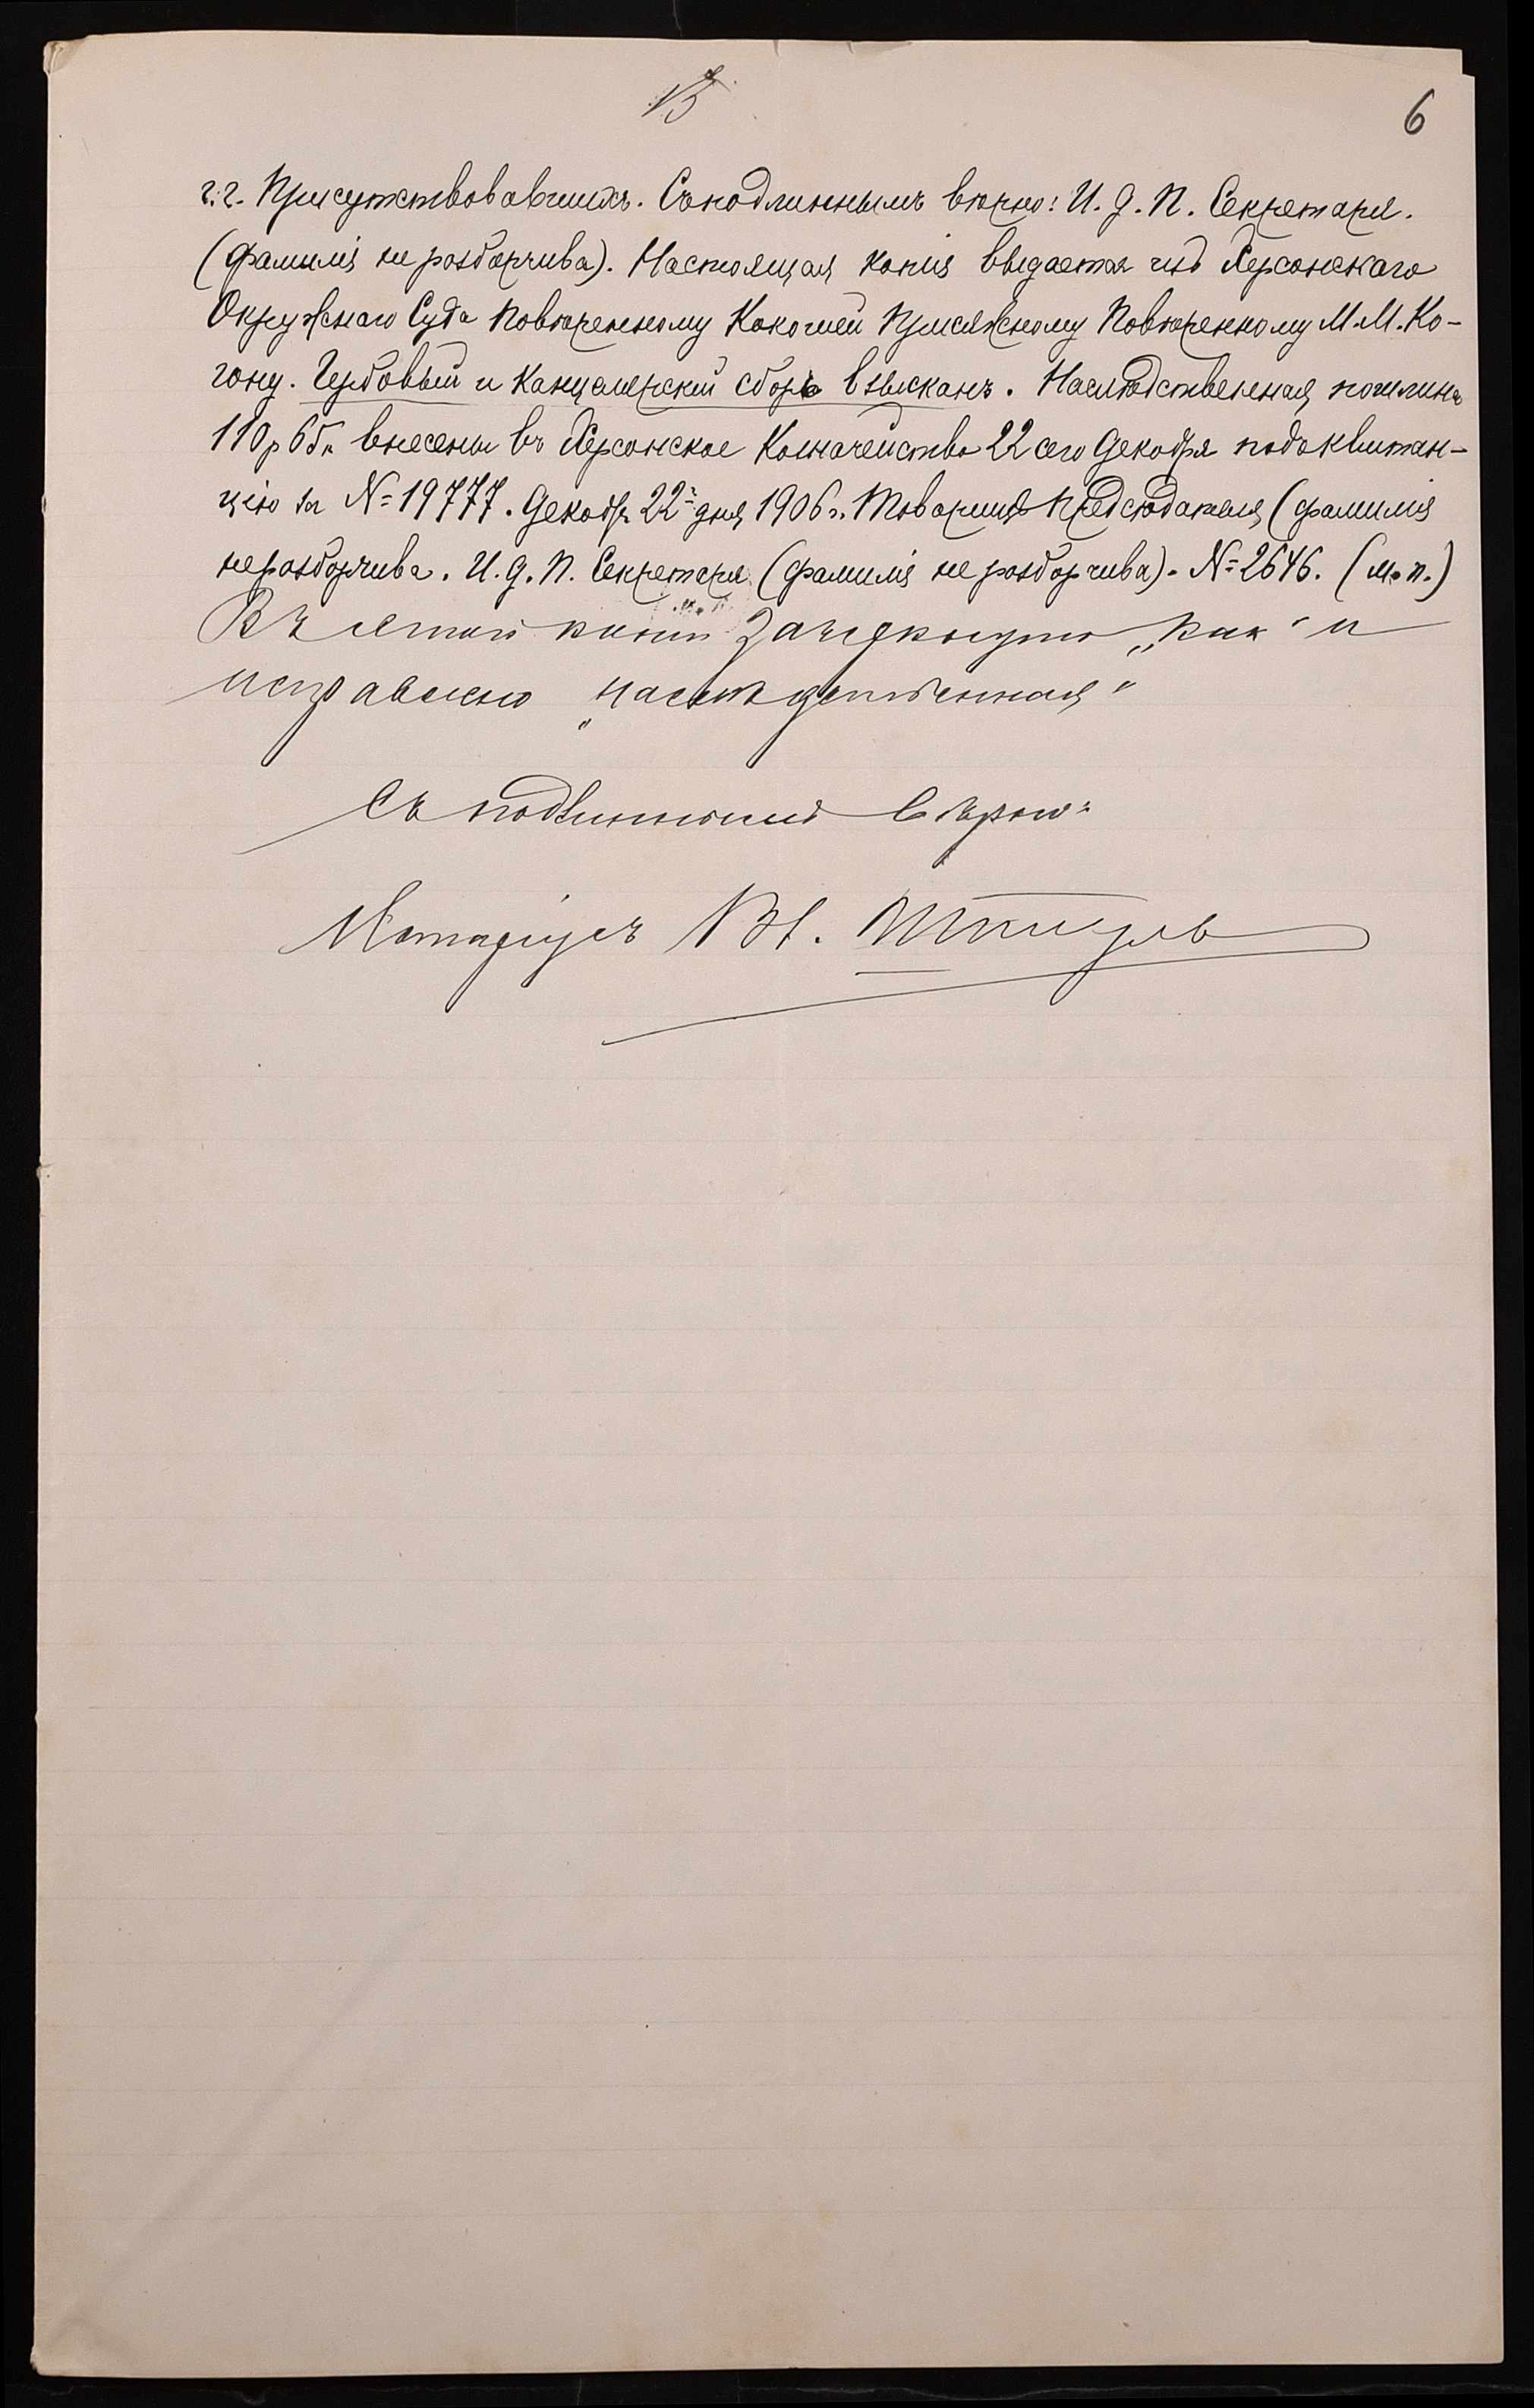 6
г.г. Присутствовавшихъ. Съ подлиннымъ вѣрно: И. д. П. Секретаря.
(фамилія не розборчива). Настоящая копія выдается изъ Херсонскаго
Окружнаго Суда повѣренному Кокошей Присяжному Повѣренному М. М. Ко-
гону. Гербовый и канцелярскій сборъ взысканъ. Наслѣдственная пошлина
110 р 65 к. внесены въ Херсонское Казначейство 22 сего Декабря подъ квитан-
цію за № 19777. Декабря 22 дня 1906 г. Товарищъ Предсѣдателя (фамилія
не розборчива. И. д. П. Секретаря (фамилія не розборчива). № 2646. (м. п.)
Въ этой копіи зачеркнуто „как“ и
исправлено „наслѣдственная“
Съ подлиннымъ вѣрно:
Нотаріусъ Вл.